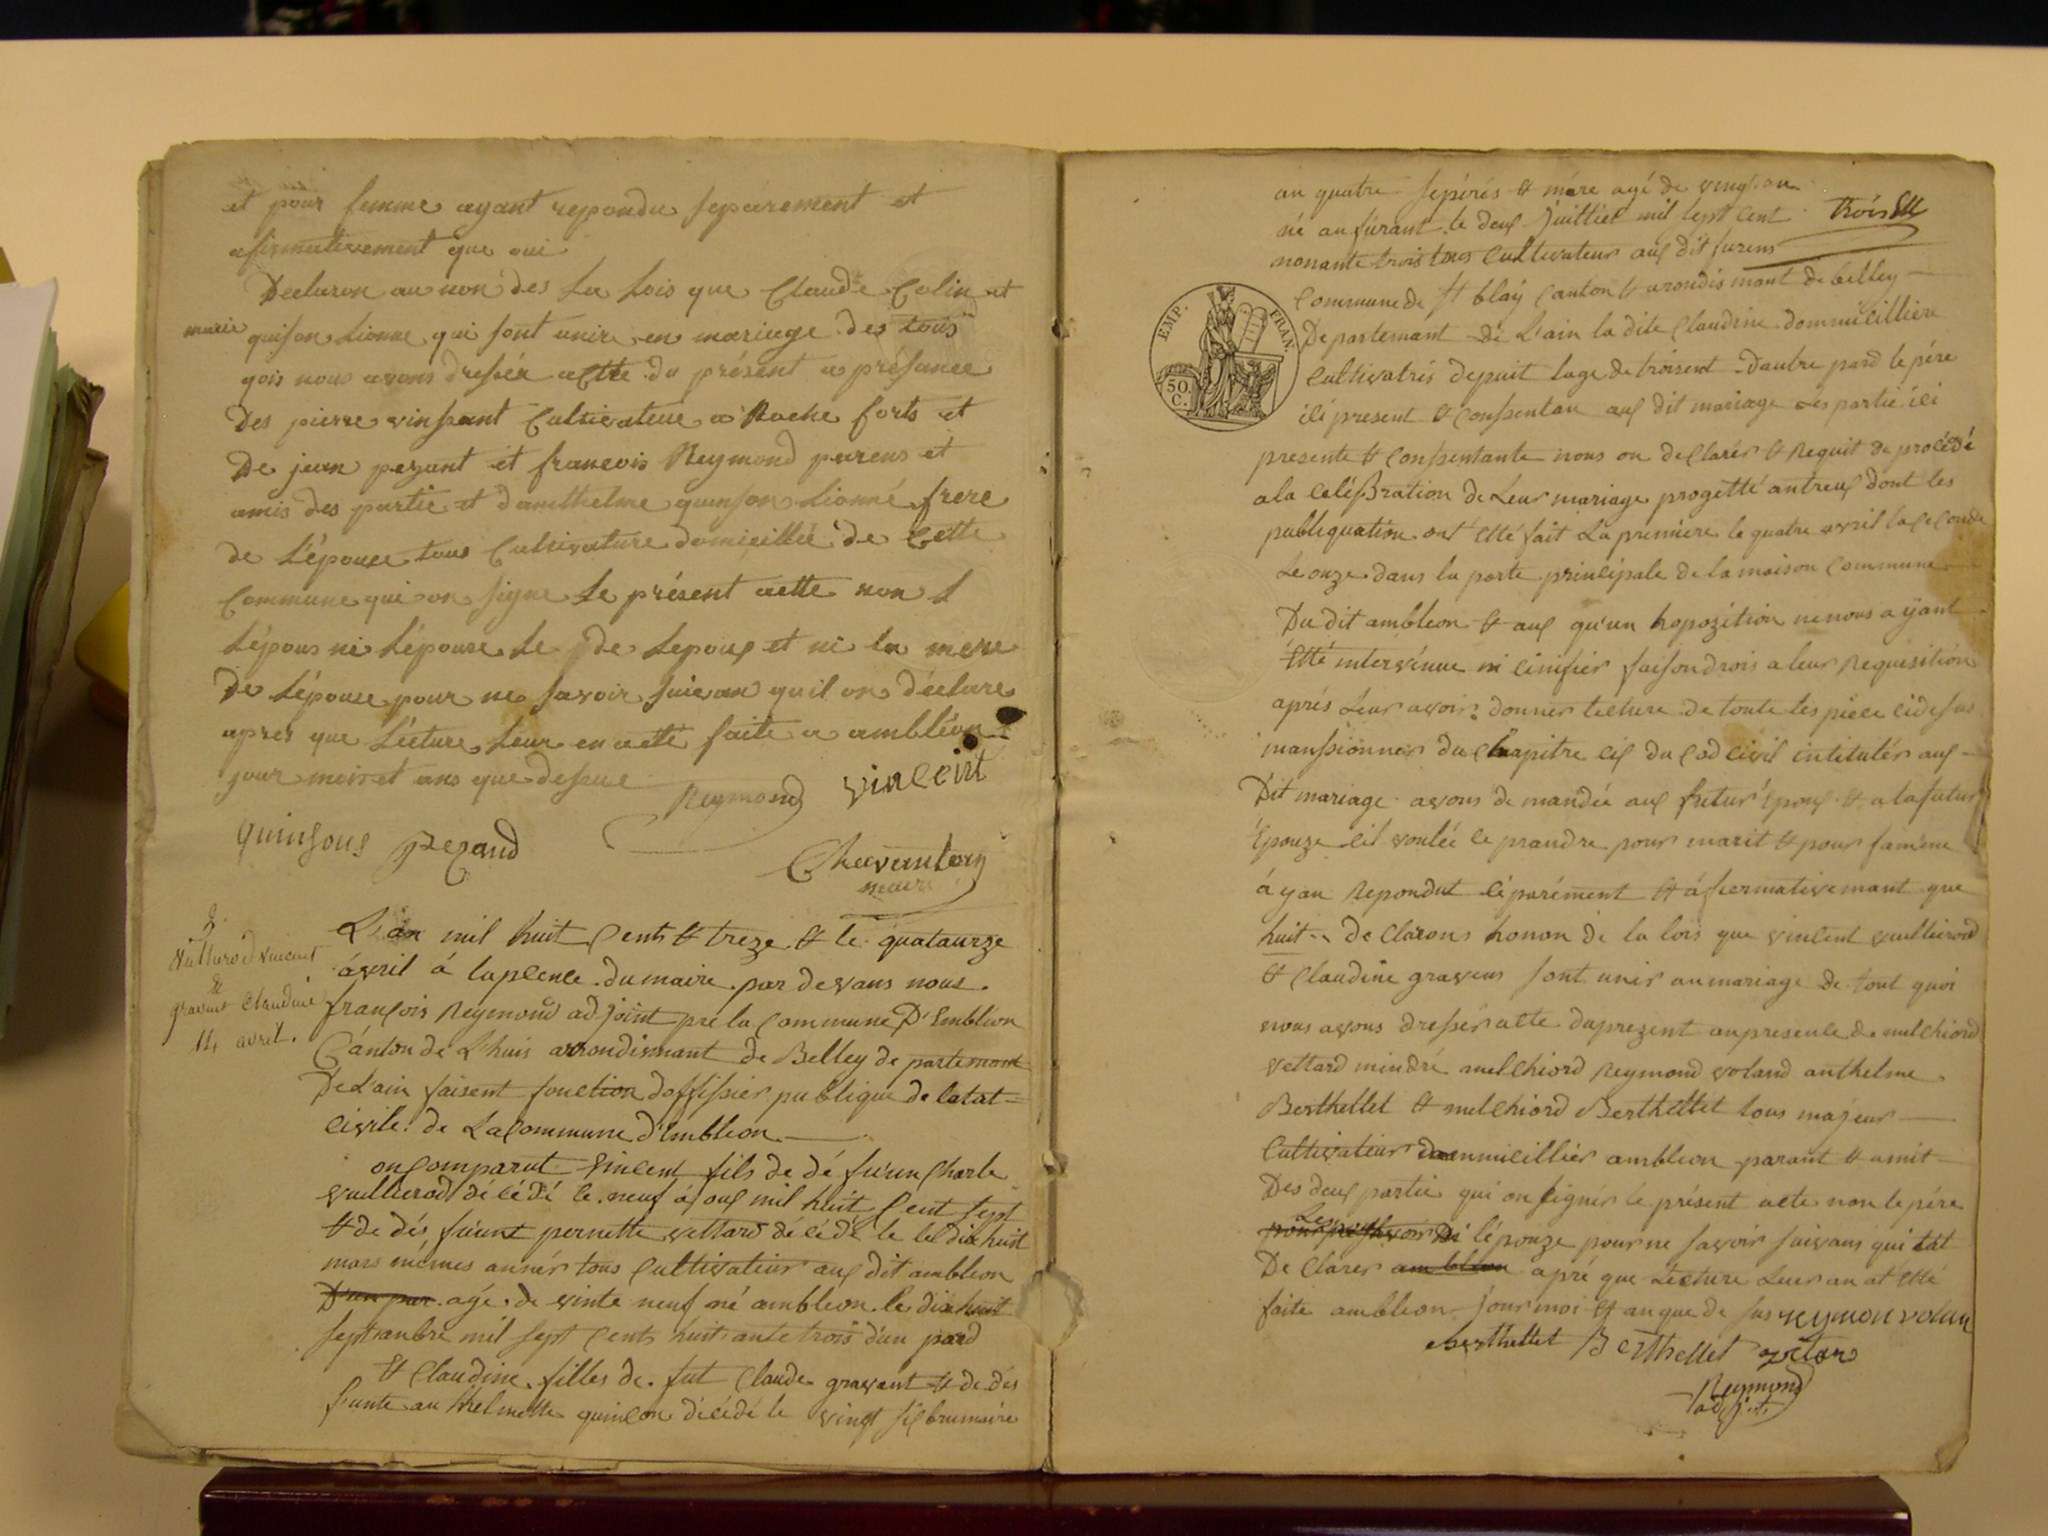 et pour femme ayant repondu separement et
afirmativement que oui
Declaron au non des La Lois que Claude Colin et
marie quison Lionne qui sont unir en mariage des tous
qois nous avons dressée actte du présent a présance
Des pierre vinsant Cultivateur a Roche forts et
De jean pezant et francois Reymond parens et
amis des partie et damthelme quinson Lionné frere
de L'épouce tous Cultivature domicillié de Cette
Commune qui on signe Le présent actte non L
Lépous ni Lépouse Le de Lepous et ni la mere
De L'épouce pour ne savoir quil on déclare
apres que Lécture Leur en aette faite a ambléon
jour mois et ans que dessue
Reymond vincent
quinsons Pezand
Chavanton
maire
3.
Vullierod vincent
&
gravent Claudine
14 avril.
L'an mil huit Cents & treze & le quataurze
ávril á laplence du maire par devans nous
françois Reymond adjoint pré la Commune D'Emblion
Cánton de L'huis arrondismant de Belley de partemant
De L'ain faisent fonction doffissier publique de latat=
Civile de La Commune d'Embleon
on Comparut vincent fils de dé funn Charle
vullierod décédé le neuf á ous mil huit Cent sept
& de dés funnt pernette vettard décédé le le dix huit
mars mémes annér tous Cultivatieur aus dit ambleon
D'un par agé de vinte neuf né ambleon le dix huit
septanbre mil sept Cents huit ante trois d'un pard
& Claudine filles de fut Claude gravent & de dés
funte an thelmette quinson décédé le vingt sis brumaire
an quatre sepérés & mére agé de vingt an
né au furant le deus Juilliet mil sept Cent trois
nonante trois tous Cultivateur aus dit furens
Commune de St blaÿ Canton & arondismant de belley
Departemant de L'ain la dite Claudine dommicillière
EMP. FRAN.
50 C.
Cultivatris depuit lage de troisent Dautre pard le pére
ici present & Conssentan aus dit mariage Les partie ici
presente & Conssentante nous on declarér & Requit de procédé
a la Céléssration de Leur mariage progetté antreus dont les
publiquation ont étté fait La premiere le quatre avril la Ceconde
Le onze dans la porte principale de la maison Commune
Du dit ambleon & aus qu'un hopozition ne nous aÿant
étté intervénue ni cinifier faison drois a leur Requisition
aprés Leur avoir donner lecture de toute les piéce cidesus
manssionner du Chapitre cis du Cod civil intitulér aus
Dit mariage avons de mandée aus futur Epous & a la futur
Epouze cil voulée ce prandre pour marit & pour famme
á yan Repondut céparément & áfiermativemant que
huit de Clarons honon de la lois que vincent vullierod
& Claudine gravens sont unir au mariage De tout quoi
nous avons dressér acte duprezent au presence de melchiord
vettard miendré melchiord Reymond voland anthelme
Berthellet & melchiord Berthellet tous majeur
Cultivatieur dommicillier ambleon parant & amit
Des deus partie qui on signér le présent acte non le pére
Le
pour ne savoir Di lépouze pour ne savoir suivans qui tat
De Clarer ambleon apré que Lecture Leur an at étté
faite ambleon Jour moi & an que de sus reymon volan
Berthellet Berthellet vetar
Reymond
adjoint